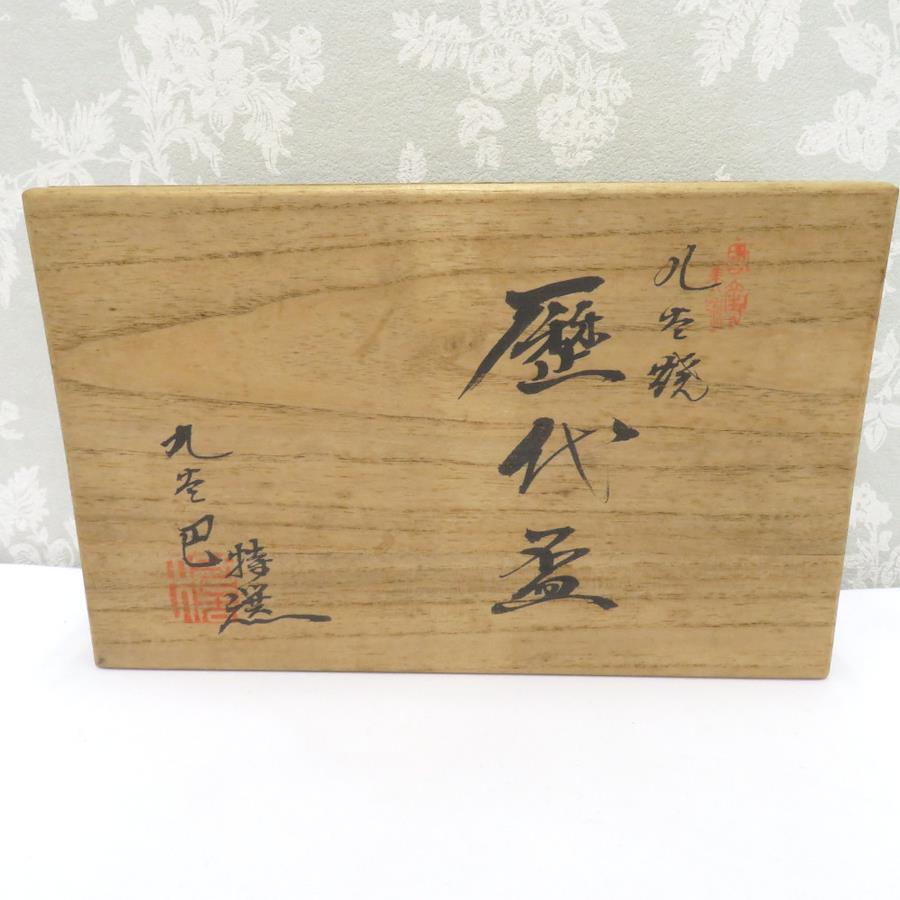 九谷焼
歴代盃
九谷巴
特選